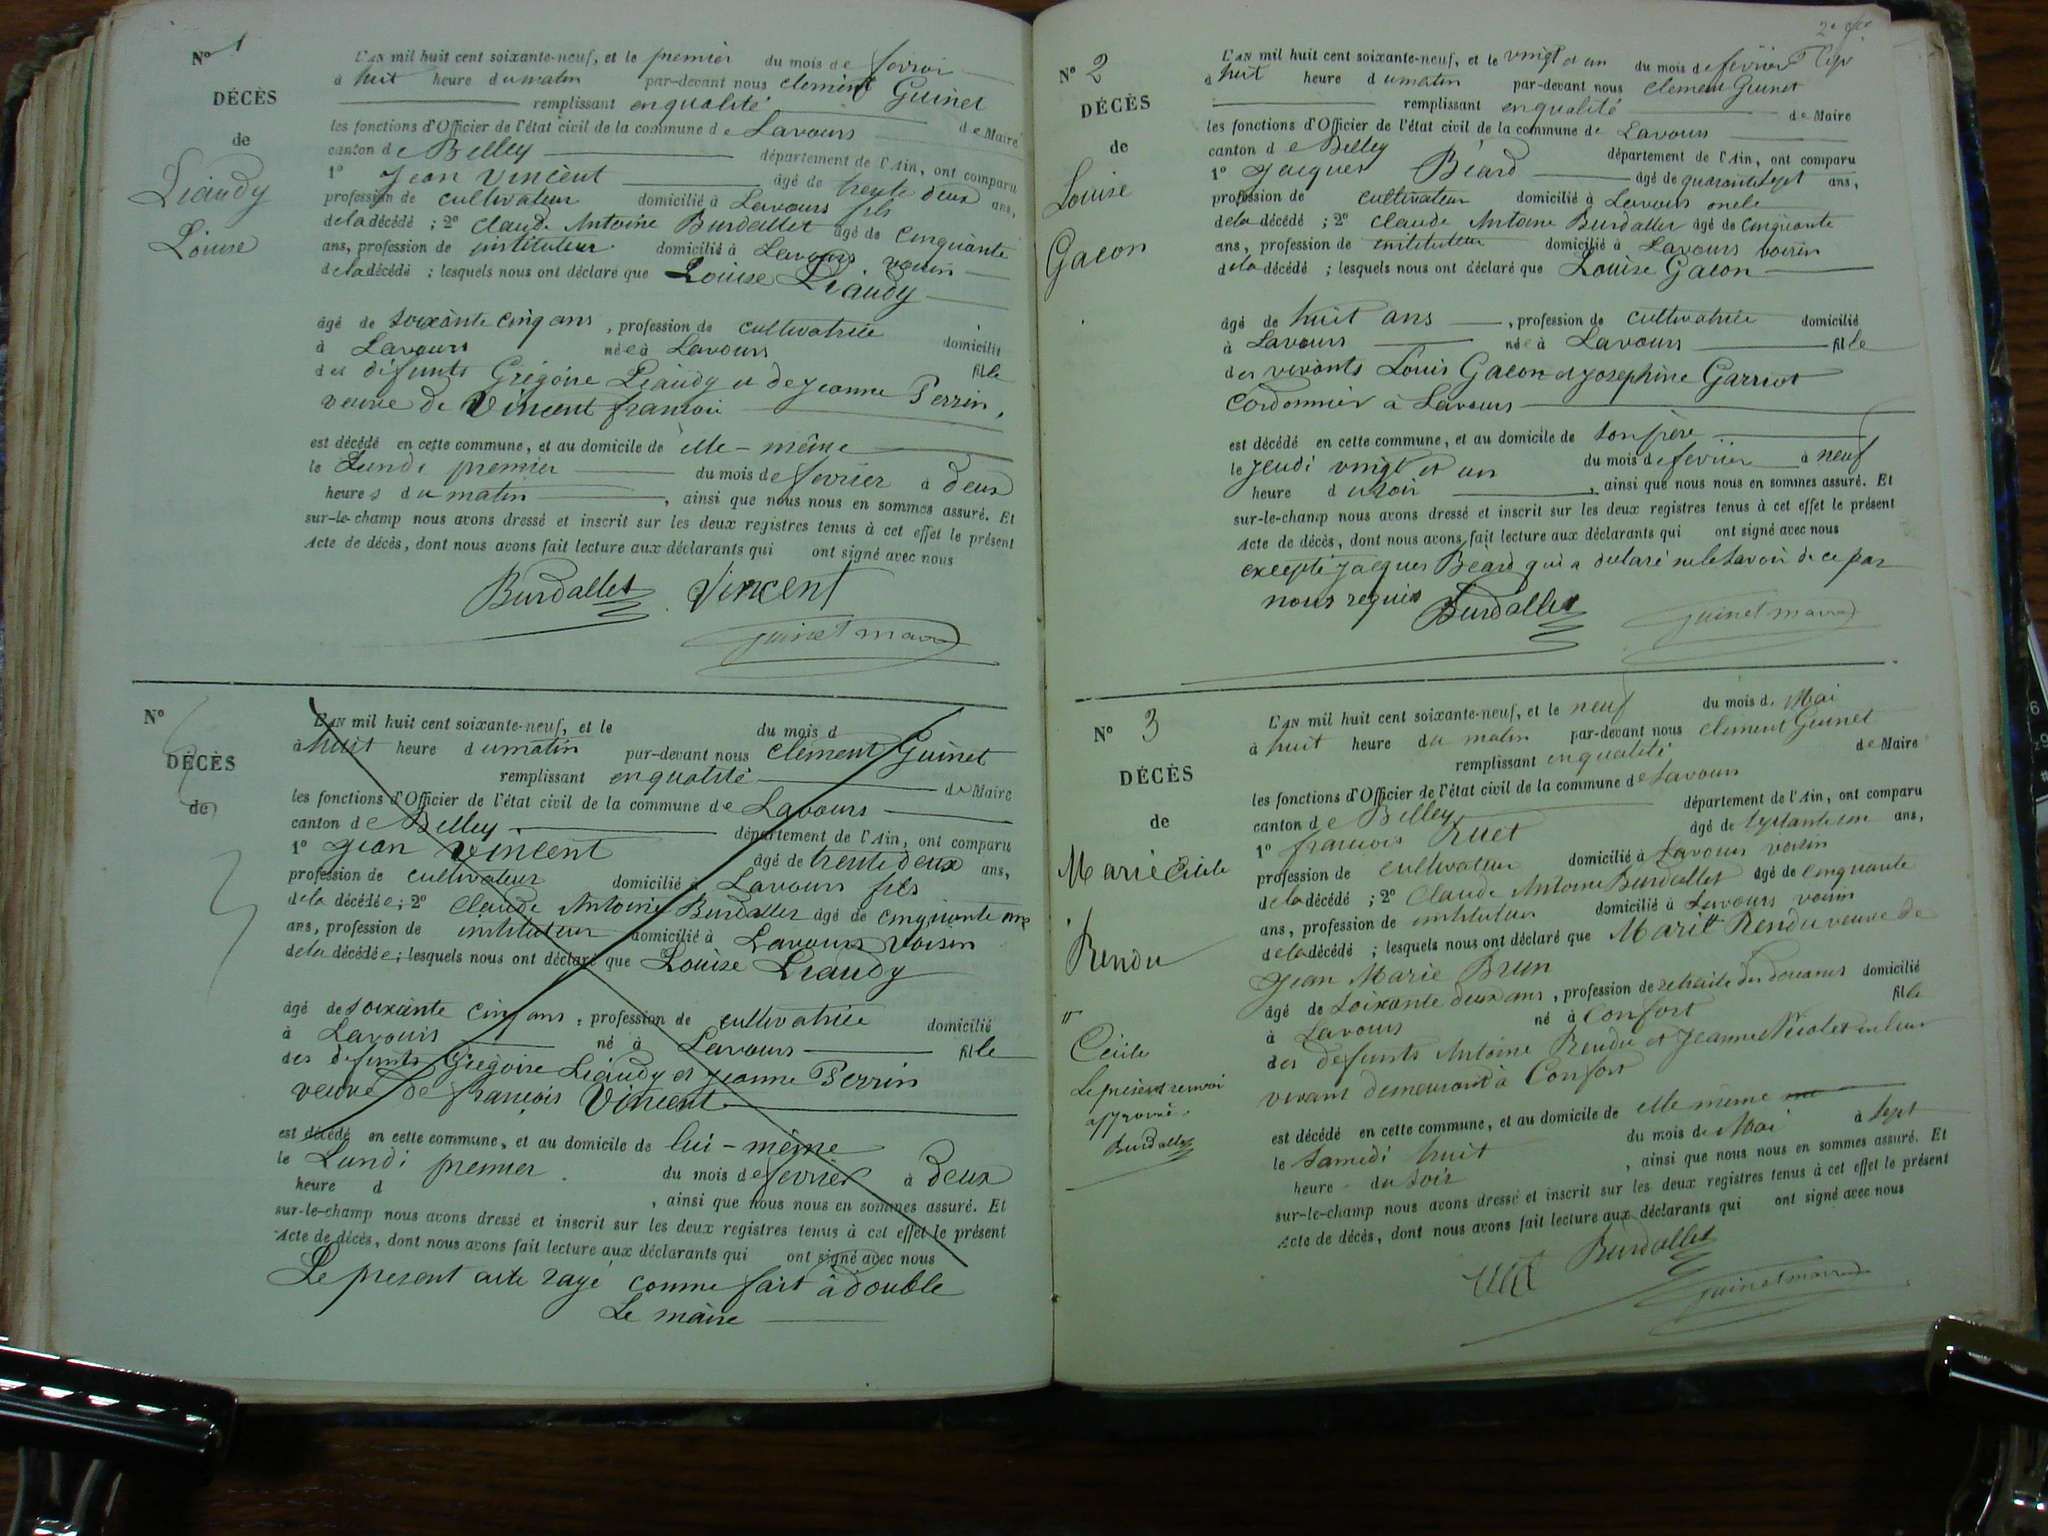 N° 1
DÉCÈS
de
Liaudy
Louise
L'AN mil huit cent soixante-neuf, et le premier du mois de fevrier
à huit heure du matin par-devant nous clement Guinet
remplissant en qualité de Maire
les fonctions d'Officier de l'état civil de la commune de Lavours
canton de Belley département de l'Ain, ont comparu
1° Jean Vincent âgé de trente deux ans,
profession de cultivateur domicilié à Lavours fils
de la décédé ; 2° Claude Antoine Burdallet âgé de cinquante
ans, profession de instituteur domicilié à Lavours voisin
de la décédé ; lesquels nous ont déclaré que Louise Liaudy
âgé de soixante cinq ans, profession de cultivatrice domicilié
à Lavours née à Lavours fille
des défunts Grégoire Liaudy et de jeanne Perrin,
veuve de Vincent francois
est décédé en cette commune, et au domicile de elle-même
le Lundi premier du mois de fevrier à deux
heures du matin, ainsi que nous nous en sommes assuré. Et
sur-le-champ nous avons dressé et inscrit sur les deux registres tenus à cet effet le présent
Acte de décès, dont nous avons fait lecture aux déclarants qui ont signé avec nous
Burdallet Vincent
guinet maire
N°
DÉCÈS
de
L'AN mil huit cent soixante-neuf, et le du mois d
à huit heure du matin par-devant nous clement Guinet
remplissant en qualité de Maire
les fonctions d'Officier de l'état civil de la commune de Lavours
canton de Belley département de l'Ain, ont comparu
1° Jean Vincent âgé de trente deux ans,
profession de cultivateur domicilié à Lavours fils
de la décédée ; 2° Claude Antoine Burdallet âgé de cinquante ans
ans, profession de instituteur domicilié à Lavours voisin
de la décédée ; lesquels nous ont déclaré que Louise Liaudy
âgé de soixante cinq ans, profession de cultivatrice domicilié
à Lavours né à Lavours fille
des défunts Grégoire Liaudy et jeanne Perrin
veuve de françois Vincent
est décédé en cette commune, et au domicile de lui-même
le Lundi premier du mois de fevrier à deux
heure d , ainsi que nous nous en sommes assuré. Et
sur-le-champ nous avons dressé et inscrit sur les deux registres tenus à cet effet le présent
Acte de décès, dont nous avons fait lecture aux déclarants qui ont signé avec nous
Le present acte rayé comme fait à double
Le maire
N° 2
DÉCÈS
de
Louise
Gacon
L'AN mil huit cent soixante-neuf, et le vingt et un du mois de février
à huit heure du matin par-devant nous clement Guinet
remplissant en qualité de Maire
les fonctions d'Officier de l'état civil de la commune de Lavours
canton de Belley département de l'Ain, ont comparu
1° Jacques Béard âgé de quarante sept ans,
profession de cultivateur domicilié à Lavours oncle
de la décédé ; 2° Claude Antoine Burdallet âgé de cinquante
ans, profession de instituteur domicilié à Lavours voisin
de la décédé ; lesquels nous ont déclaré que Louise Gacon
âgé de huit ans, profession de cultivatrice domicilié
à Lavours née à Lavours fille
des vivants Louis Gacon et Josephine Garriot
Cordonnier à Lavours
est décédé en cette commune, et au domicile de son père
le jeudi vingt et un du mois de fevrier à neuf
heure du soir, ainsi que nous nous en sommes assuré. Et
sur-le-champ nous avons dressé et inscrit sur les deux registres tenus à cet effet le présent
Acte de décès, dont nous avons fait lecture aux déclarants qui ont signé avec nous
excepté jacques Béard qui a declaré ne le savoir de ce par
nous requis Burdallet guinet maire
N° 3
DÉCÈS
de
Marie Cécile
Rendu
Cécile
Le présent renvoi
approuvé.
Burdallet
L'AN mil huit cent soixante-neuf, et le neuf du mois de Mai
à huit heure du matin par-devant nous clement Guinet
remplissant en qualité de Maire
les fonctions d'Officier de l'état civil de la commune de Lavours
canton de Belley département de l'Ain, ont comparu
1° francois Ruet âgé de ans,
profession de cultivateur domicilié à Lavours voisin
de la décédé ; 2° Claude Antoine Burdallet âgé de cinquante
ans, profession de instituteur domicilié à Lavours voisin
de la décédé ; lesquels nous ont déclaré que Marie Rendu veuve de
Jean Marie Brun
âgé de soixante deux ans, profession de retraite des douanes domicilié
à Lavours né à Confort fille
des défunts Antoine Rendu et Jeanne Nicolet en leur
vivant demeurant à Confort
est décédé en cette commune, et au domicile de elle même
le samedi huit du mois de Mai à sept
heure du soir, ainsi que nous nous en sommes assuré. Et
sur-le-champ nous avons dressé et inscrit sur les deux registres tenus à cet effet le présent
Acte de décès, dont nous avons fait lecture aux déclarants qui ont signé avec nous
Burdallet
guinet maire